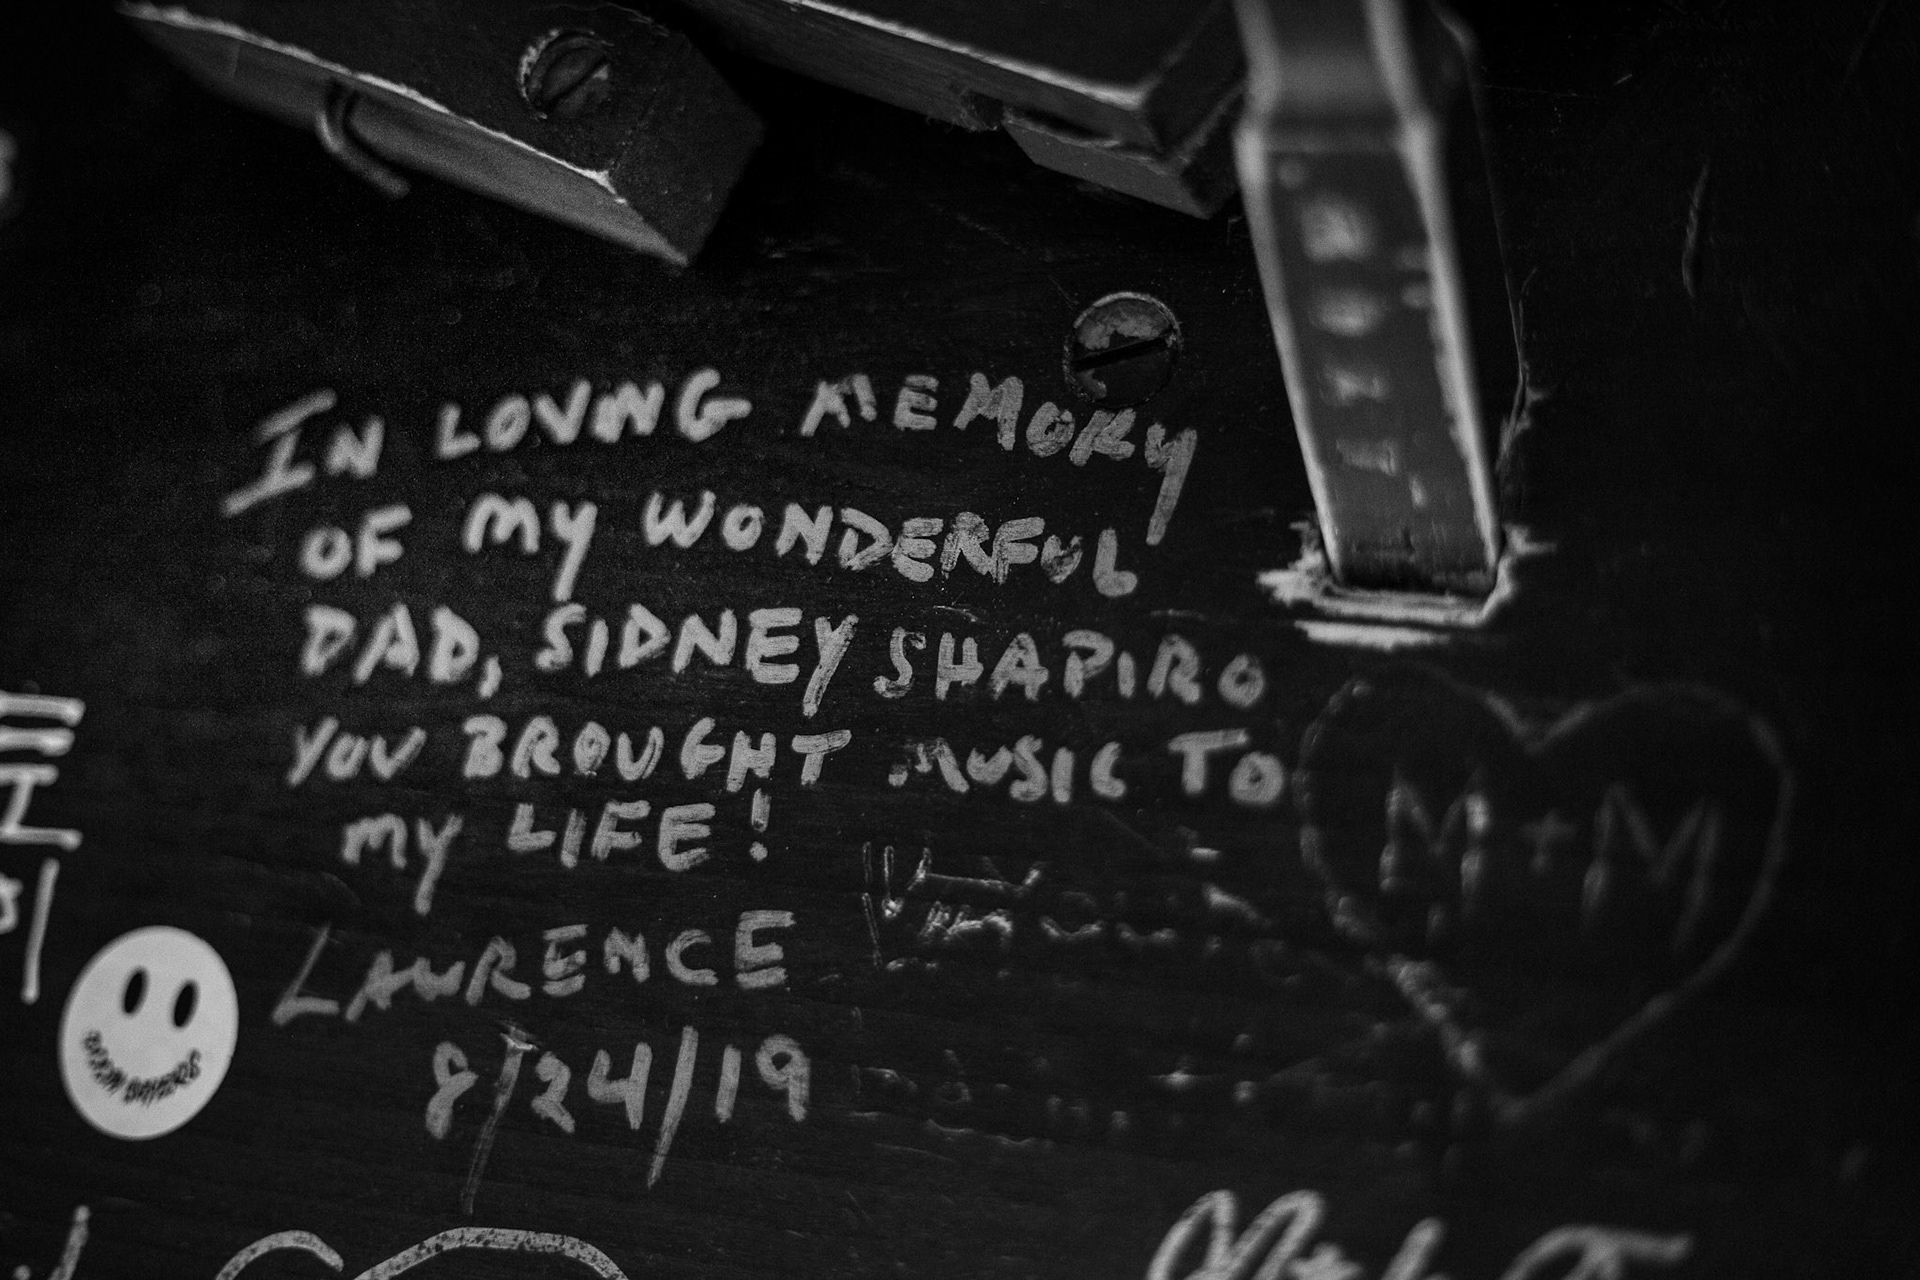 IN LOVING MEMORY
OF MY WONDERFUL
DAD, SIDNEY SHAPIRO
YOU BROUGHT MUSIC TO
MY LIFE!
LAWRENCE
8/24/19
M+M